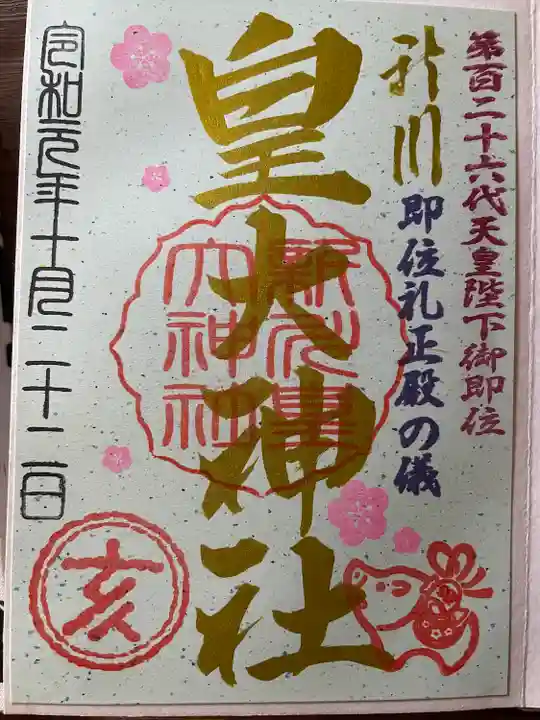 第百二十六代天皇陛下御即位
新川
即位礼正殿の儀
皇大神社
新川皇大神社
令和元年十月二十二日
亥